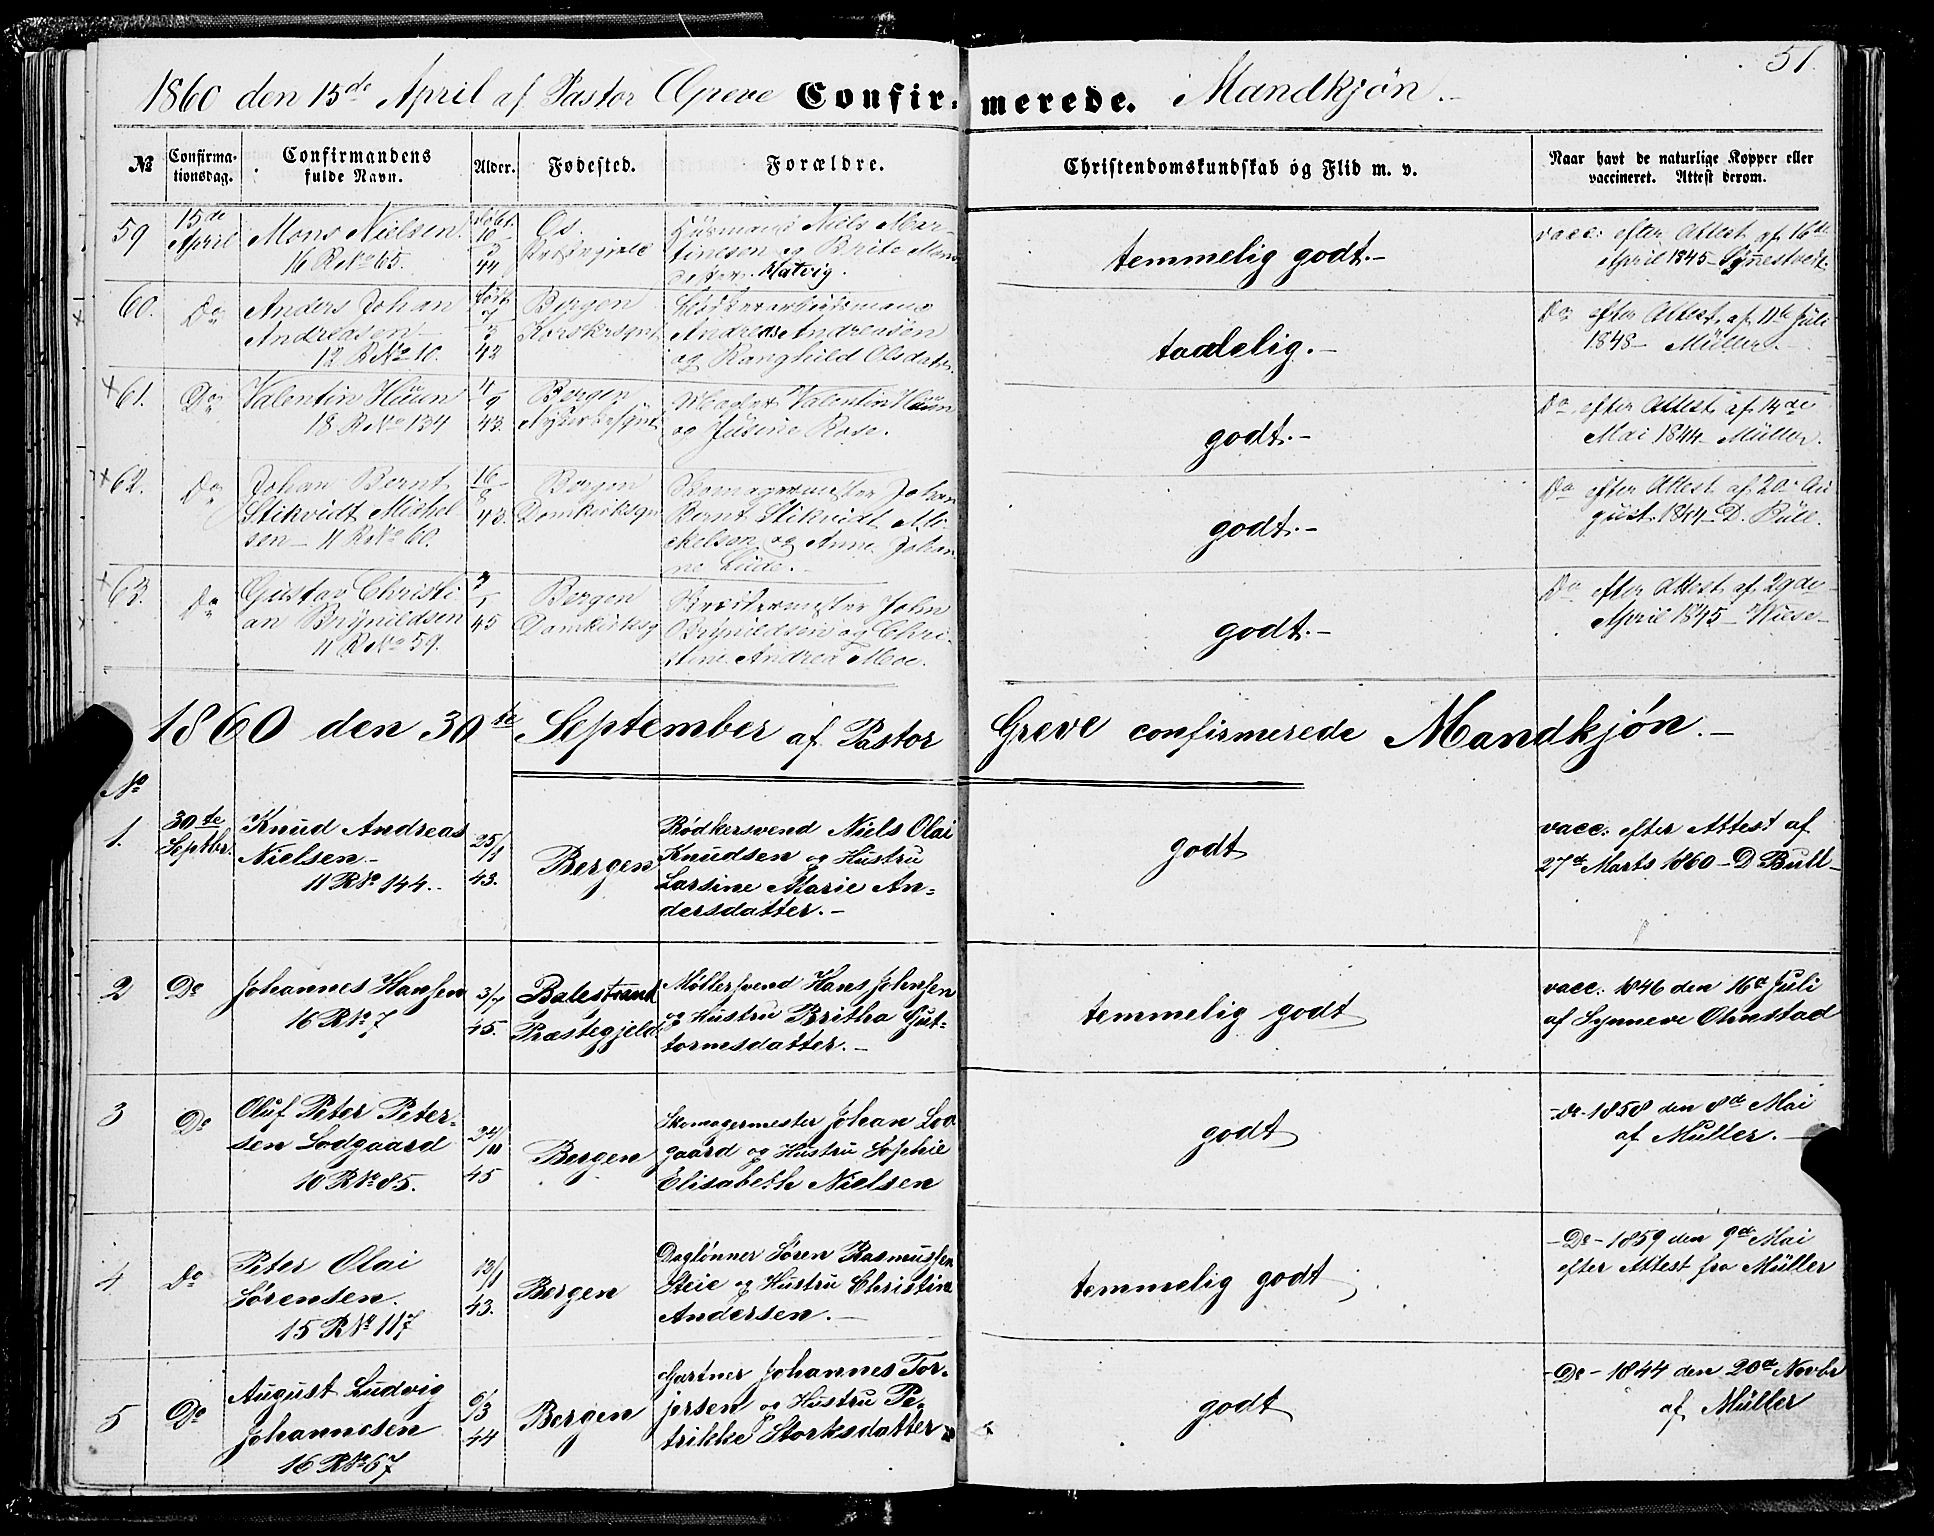 51.
1860 den 15de April af Pastor Greve Confir- merede. Mandkjøn.-
№ Confirma-tionsdag. Confirmandens fulde Navn. Alder. Fødested. Forældre. Christendomskundskab og Flid m. v. Naar havt de naturlige Kopper eller vaccineret. Attest derom.
59 15de April Mons Nielsen. 16 R No 65. 44 Os. Husmand Niels Mar-
tinesen og Brite Mons
datter Hatvig.
temmelig godt.-
vacc: efter Attest af 16de
April 1845
60. Do Anders Johan
Andreasen
12 R No 10.
42
Bergen
Korskirkesgnt
Andreas Andreasen
og Ranghild Olsdatter.
taalelig.-
Do efter Attest af 11te Juli
1848- Müller.-
+61. Do Valentin Huun
18 R No 134
4/9 43.
Bergen
Nykirkesgnt
Valentin Huun
og Jusine Rose.
godt.-
Do efter Attest af 14de
Mai 1844 Müller.
+62. Do Johan Bernt
Stikvidt Michel
sen- 11 R No 60.
16/8 43.
Bergen
Domkirkesgn
Skomagermester Johan
Bernt Stikvidt Mi
kelsen og Anne Johan
ne Lude.-
godt.-
Do efter Attest af 20 Au
gust 1844- D. Büll.
+63. Do Gustav Christi
an Brynildsen
11 R No 59.
45
Bergen
Domkirkesg
John
Brynildsen og Chri
stine Andrea Moe.
godt.-
Do efter Attest af 29de
April 1845- Wiese-
1860 den 30te September af Pastor Greve confirmerede Mandkjøn.-
No
1. 30te Septbr. Knud Andreas
Nielsen-
11 R No 144.
25/1 43.
Bergen
Bødkersvend Niels Olai
Knudsen og Hustru
Larsine Marie An=
dersdatter.-
godt
vacc: efter Attest af
27de Marts 1860- D Bull-
2 Do Johannes Hansen
16 R No 7
3/7 45.
Balestrand
Præstegjeld
Møllersvend Hans Johnsen
og Hustru Britha Gut-
tormesdatter.-
temmelig godt
vacc: 1846 den 16d Juli
af Synneve Ohnstad
3 Do Oluf Peter Peter-
sen Lodgaard
10 R No 85.
24/11 45
Bergen
Skomagermester Johan Lod
gaard og Hustru Sophie
Elisabeth Nielsen
godt
-Do- 1858 den 8de Mai
af Müller.-
4 Do Peter Olai
Sørensen.
15 R No 117
13/1 43.
Bergen
Daglønner Søren Rasmussen
Steie og Hustru Christine
Andersen.-
temmelig godt
-Do- 1859 den 9de Mai
efter Attest fra Müller
5 Do August Ludvig
Johannesen
16 R No 67
6/3 44
Bergen
Gartner Johannes Tor-
jersen og Hustru Pe-
trikke Storksdatter
godt
-Do- 1844 den 20de Novbr
af Müller